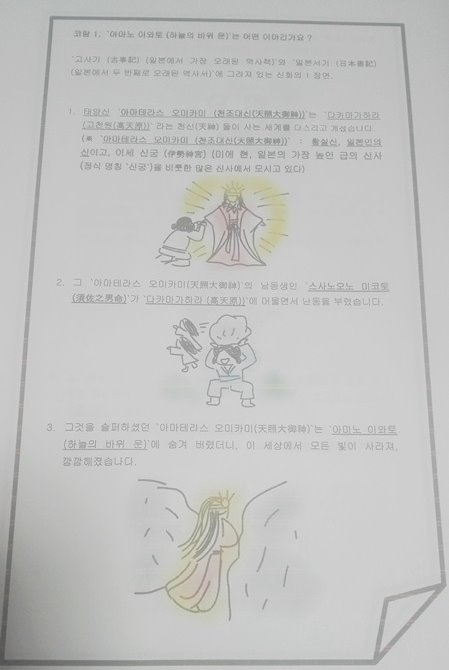 코람 1, '아마노 이와토 (하늘의 바위 문)'는 어떤 이야긴가요 ?
'고사기 (古事記) (일본에서 가장 오래된 역사책)'와 '일본서기 (日本書記)
(일본에서 두 번째로 오래된 역사서)'에 그려져 있는 신화의 1 장면.
1. 태양신 '아마테라스 오미카미 (천조대신(天照大御神)'는 '다카마가하라
(고천원(高天原))' 라는 천신(天神) 들이 사는 세계를 다스리고 계셨습니다.
(※ '아마테라스 오미카미 (천조대신(天照大御神))' : 황실신, 일본인의
신이고, 이세 신궁 (伊勢神宮) (미에 현, 일본의 가장 높은 급의 신사
(정식 명칭 '신궁')을 비롯한 많은 신사에서 모시고 있다)
2. 그 '아마테라스 오미카미(天照大御神)'의 남동생인 '스사노오노 미코토
(須佐之男命)'가 '다카마가하라 (高天原)'에 머물면서 난동을 부렸습니다.
3. 그것을 슬퍼하셨던 '아마테라스 오미카미(天照大御神)'는 '아마노 이와토
(하늘의 바위 문)'에 숨겨 버렸더니, 이 세상에서 모든 빛이 사라져,
깜깜해졌습니다.